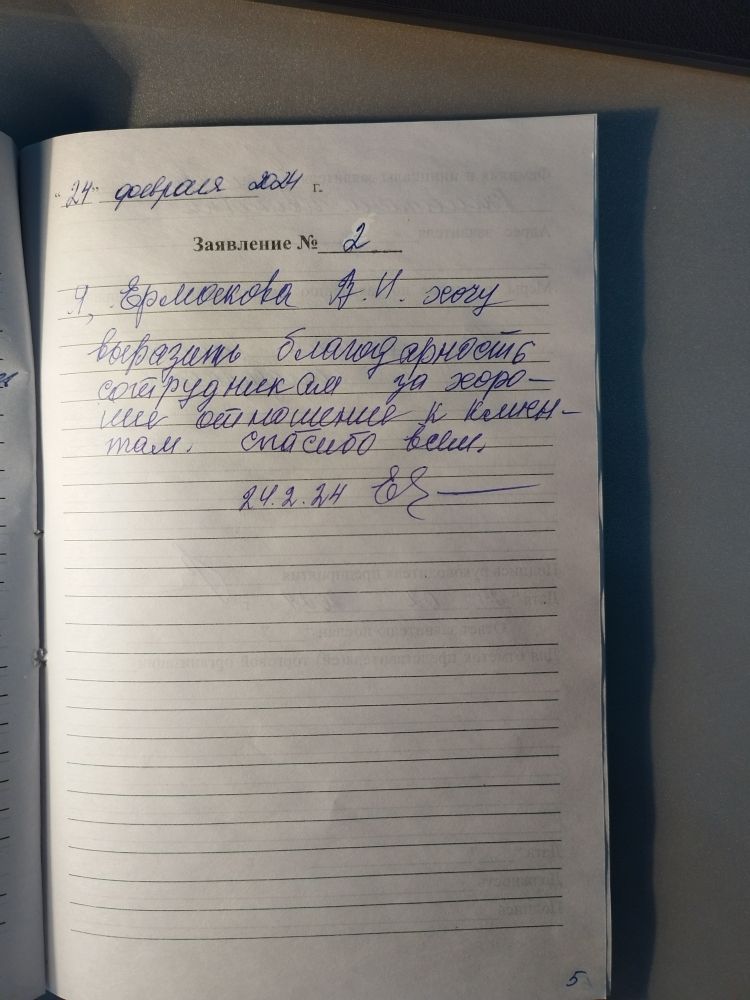 "24" февраля 2024 г.
Заявление № 2
Я, Ермакова В.И. хочу
выразить благодарность
сотрудникам за хоро-
шие отношение к клиен-
там. спасибо всем.
24.2.24
5